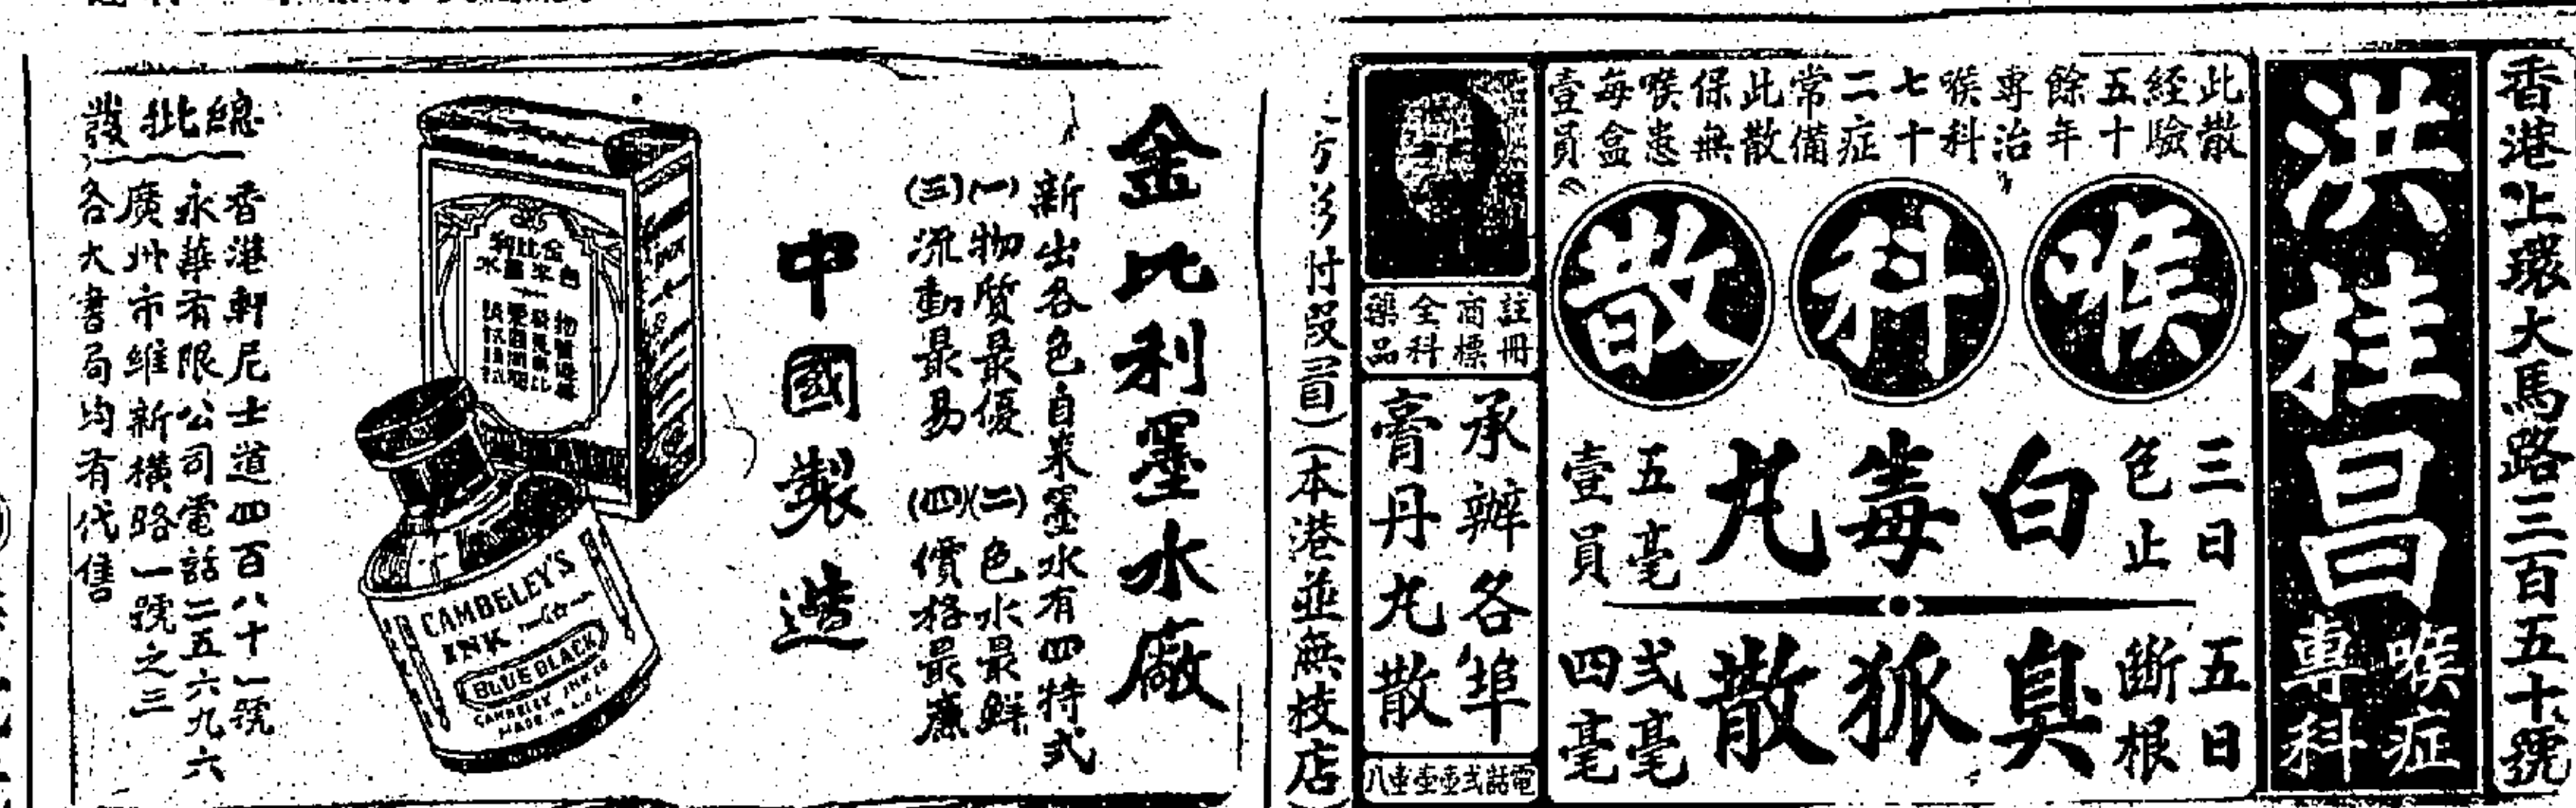 香港上環大馬路三百五十號
洪桂昌
喉症
專科
此散
経驗
五十
餘年
專治
喉科
七十
二症
常備
此散
保無
喉患
每盒
壹員
喉科散
三日
色止
白毒丸
五毫
壹員
五日
斷根
臭狐散
弍毫
四毫
註冊
商標
全科
藥品
承辦各埠
膏丹丸散
電話弍壹壹壹八
(本港並無枝店)
金比利墨水廠
新出各色自來墨水有四特式
(一)物質最優 (二)色水最鮮
(三)流動最易 (四)價格最廉
中國製造
金比利
CAMBELEY'S
INK
BLUE BLACK
CAMBELEY INK CO
總批發
香港軒尼士道四百八十一號
永華有限公司電話二五六九六
廣州市維新橫路一號之三
各大書局均有代售